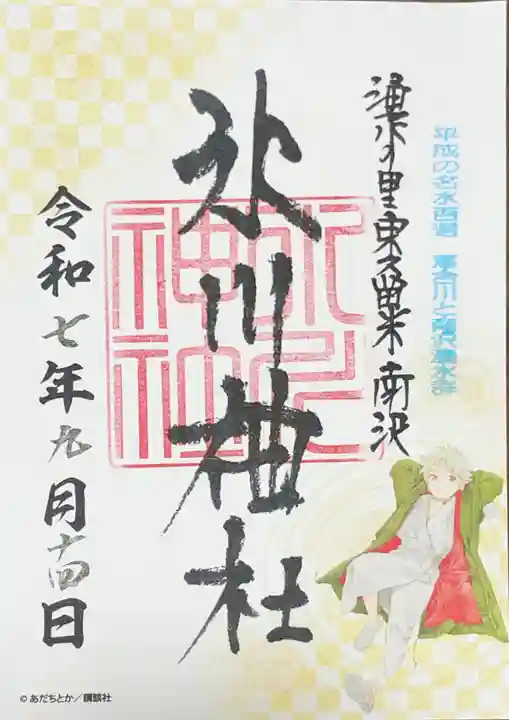 平成の名水百選 落合川と南沢湧水群
湧水の里東久留米南沢
氷川神社
氷川神社
令和七年九月十四日
© あだちとか／講談社